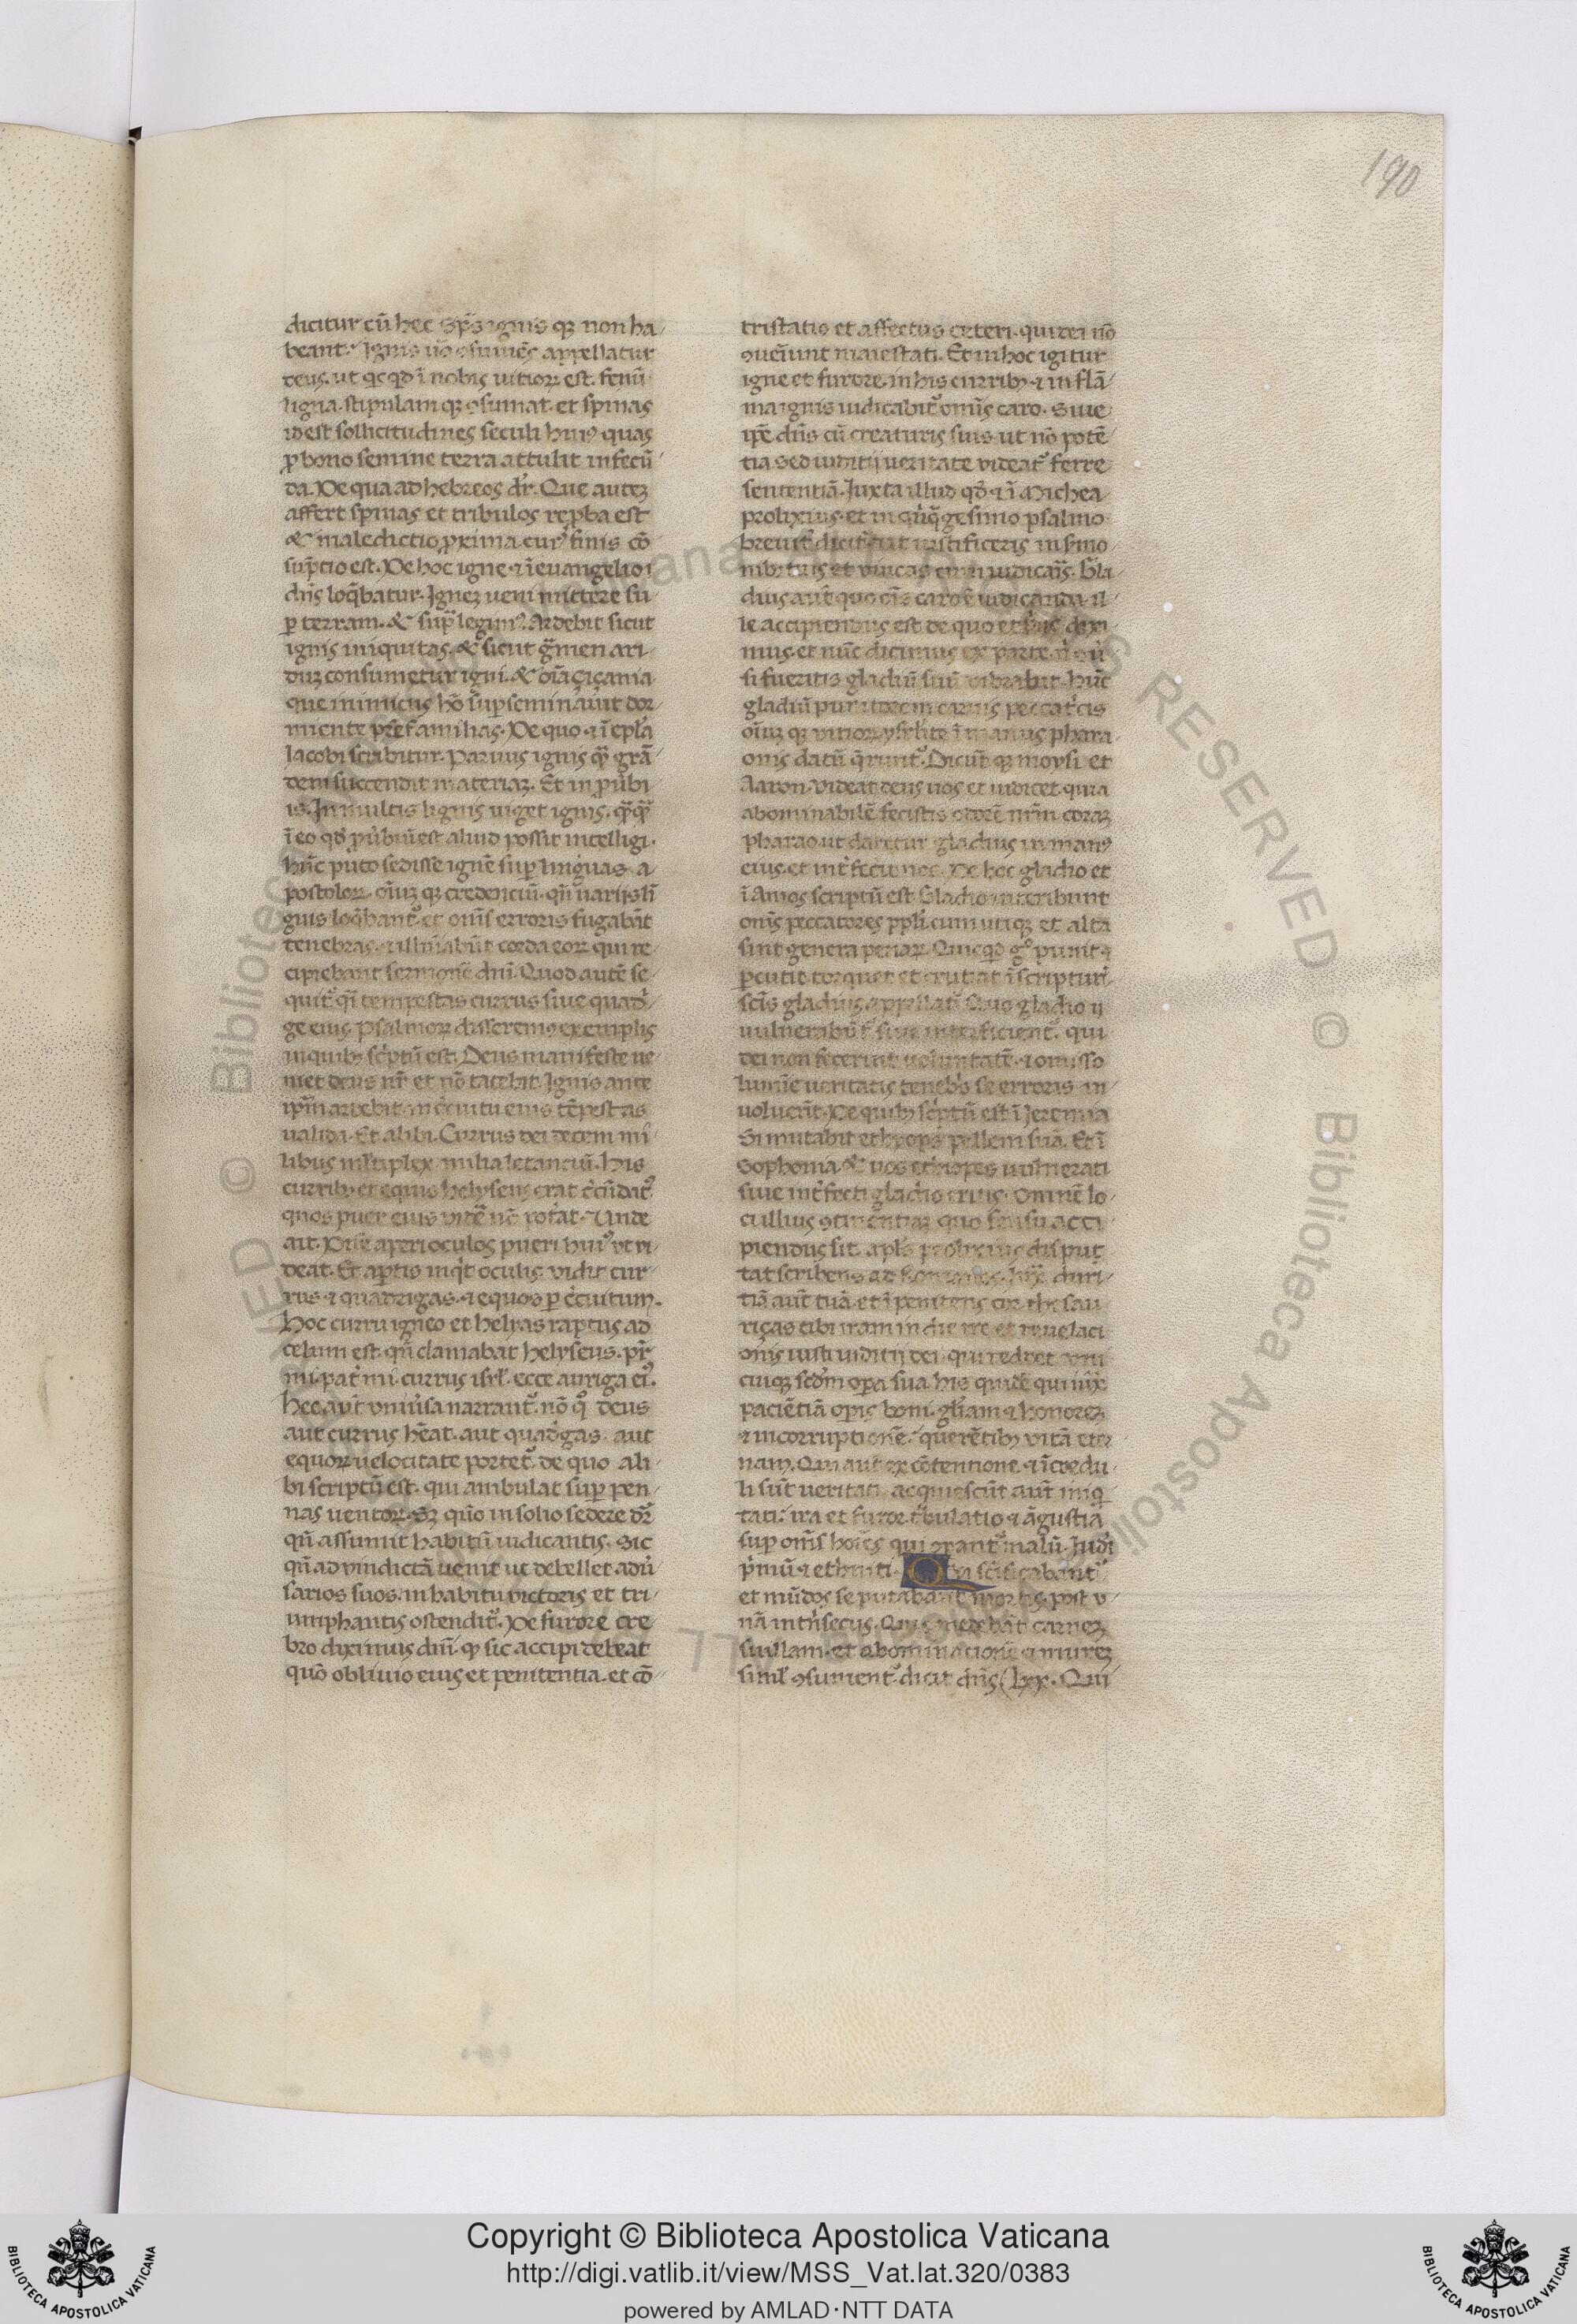 190
dicitur cū hec sp̄s ignis qꝫ non ha
beant. Ignis nō ꝯsumēs appellatur
deus. ut qͥcqͥd ī nobis uitioꝝ est. fenū
ligna. stipulam qꝫ ꝯsumat. et spinas
id est sollicitudines seculi huiꝰ quas
ꝓ bono semine terra attulit infecū
da. De qua ad hebreos dr̄. Que autēꝫ
affert spinas et tribulos reꝓba est
& maledictio ꝓxima. cuiꝰ finis cō
sūptio est. De hoc igne ⁊ ī euangelio
dn̄s loq̄batur. Igneꝫ ueni mittere su
ꝑ terram. & sup̄ legimꝰ. Ardebit sicut
ignis iniquitas. & sicut gͣmen ari
duꝫ consumetur igni. & oīa çiçania
que inimicus hō suꝑseminauit dor
miente pr̄efamilias. De quo ⁊ ī epl̄a
Iacobi scribitur. Paruus ignis qͣ grā
dem succendit materiaꝫ. Et in ꝓuͥbi
is. In multis lignis uiget ignis. qͣqͣ
ī eo qd̓ ꝓuͥbiū est aliud possit intelligi.
hūc puto sedisse ignē suꝑ linguas a
postoloꝝ. oīuꝫ qꝫ credenciū. qn̄ uarijs lī
guis loq̄bantᷣ. et om̄s erroris fugabāt
tenebras. ⁊ illūabāt corda eoꝝ qui re
cipiebant sermonē dn̄i. Quod autē se
quitᷣ qͣi tempestas currus siue quadͥ
ge eius. Psalmoꝝ disseremꝰ exemplis
in quibꝫ scͥptū est. Deus manifeste ue
niet deus nr̄ et nō tacebit. Ignis ante
ip̄m ardebit. in cͥcuitu eius tēpestas
ualida. Et alibi. Currus dei decem mi
libus mltiplex milia letanciū. His
curribꝫ et equis helyseus erat cͥcūdatᷣ
quos puer eius uidē nō potͣat. Unde
ait. Dn̄e aperi oculos pueri huiꝰ ut ui
deat. Et aꝑtis inqͥt oculis. uidit cur
rus ⁊ quadrigas. ⁊ equos ꝑ cͥcuitum.
Hoc curru igneo et helyas raptus ad
celum est. qn̄ clamabat helyseus. pr̄
mi. patͥ mi. currus isrl̄. ecce auriga eiꝰ.
Hec aūt uniuͥsa narrantᷣ. nō qͦ deus
aut currus hēat. aut quadͥgas. aut
equoꝝ uelocitate portetᷣ. de quo ali
bi scriptū est. qui ambulat suꝑ pen
nas uentoꝝ. Sꝫ quō in solio sedere dr̄
qn̄ assumit habitū iudicantis. Sic
qn̄ ad uindictā uenit ut debellet aduͥ
sarios suos. in habitu uictoris et tri
umphantis ostenditᷣ. De furore cre
bro diximus dn̄i. qꝫ sic accipi debeat
quō obliuio eius et penitentia. et cō
tristatio et affectus ceteri. qui dei nō
ꝯueīunt maiestati. Et in hoc igitur
igne et furore. in his curribꝫ ⁊ in flā
ma ignis iudicabitᷣ omīs caro. Siue
ip̄e dn̄s cū creaturis suis. ut nō potē
tia sed iuditij ueritate uideatᷣ ferre
sententiā. Iuxta illud qd̓ ⁊ ī Michea
prolixius. et in qͥnqͣgesimo psalmo
breuitͥ dicitᷣ. ut iustificeris in sͥmo
nibꝫ tuis et uincas cum iudicaris. Gla
dius autē quo oīs caro ē iudicanda. il
le accipiendus est de quo et suͥius dixi
mus. et nūc dicimus ex parte.
si fueritis gladiū suū uibrabit. Hūc
gladiū
oīuꝫ qꝫ uitioꝝ in manus phara
onis datū q̄runtᷣ. Dicūt qꝫ moysi et
Aaron. Videat deus uos et iudicet. quia
abominabilē fecistis odorē nr̄m coraꝫ
pharao ut daretur gladius in manꝰ
eius. et intͥfecit nos. De hoc gladio et
ī Amos scriptū est. Gladio interibunt
om̄s peccatores ppl̄i. cum utiqꝫ et alia
sint genera penaꝝ. Quicqͥd gͦ punit ⁊
ꝑcutit torquet et cruciat ī scripturͥ
scīs gladius appellatᷣ. Quo gladio ij
uulnerabūtᷣ siue interficientᷣ. qui
dei non fecerint uoluntatē. ⁊ omisso
lumīe ueritatis tenebͥs se erroris in
uoluerīt. De quibꝫ scͥptū est ī Ieremia
Si mutabit ethyops pellem suā. Et ī
Sophonia. & uos ethiopes uulnerati
siue intͥfecti gladio eritis. Omnē lo
cullius ꝯtinentiaꝫ quo sensu acci
piendus sit. apl̄s prolixius dispu
tat scribens ad Romanos. duri
tiā aūt tuā. et īpenitens cor. thesau
riças tibi iram in die ire et reuelaci
onis iusti iuditij dei. qui reddet uni
cuiqꝫ scdm opera sua. his quidē qui iux̄
paciētiā opis boni. gl̄iam ⁊ honoreꝫ
⁊ incorruptionē. querētibꝫ uitā eter
nam. Qui aut ex cōtentione. ⁊ īcredu
li sūt ueritati. acquiescūt aūt iniqͥ
tati. ira et furor. tͥbulatio ⁊ āgustia
suꝑ om̄s hoīes qui oꝑantᷣ malū. Iudͥi
pͥmū ⁊ ethniti. Qui scīficabantᷣ
et mūdos se putabant in ortis. post u
nā intͥnsecus. Qui ꝯmedebāt carneꝫ
suillam. et abominacionē ⁊ mureꝫ
siml̓ ꝯsumentᷣ. dicit dn̄s. lxx. Qui
Copyright © Biblioteca Apostolica Vaticana
http://digi.vatlib.it/view/MSS_Vat.lat.320/0383
powered by AMLAD·NTT DATA